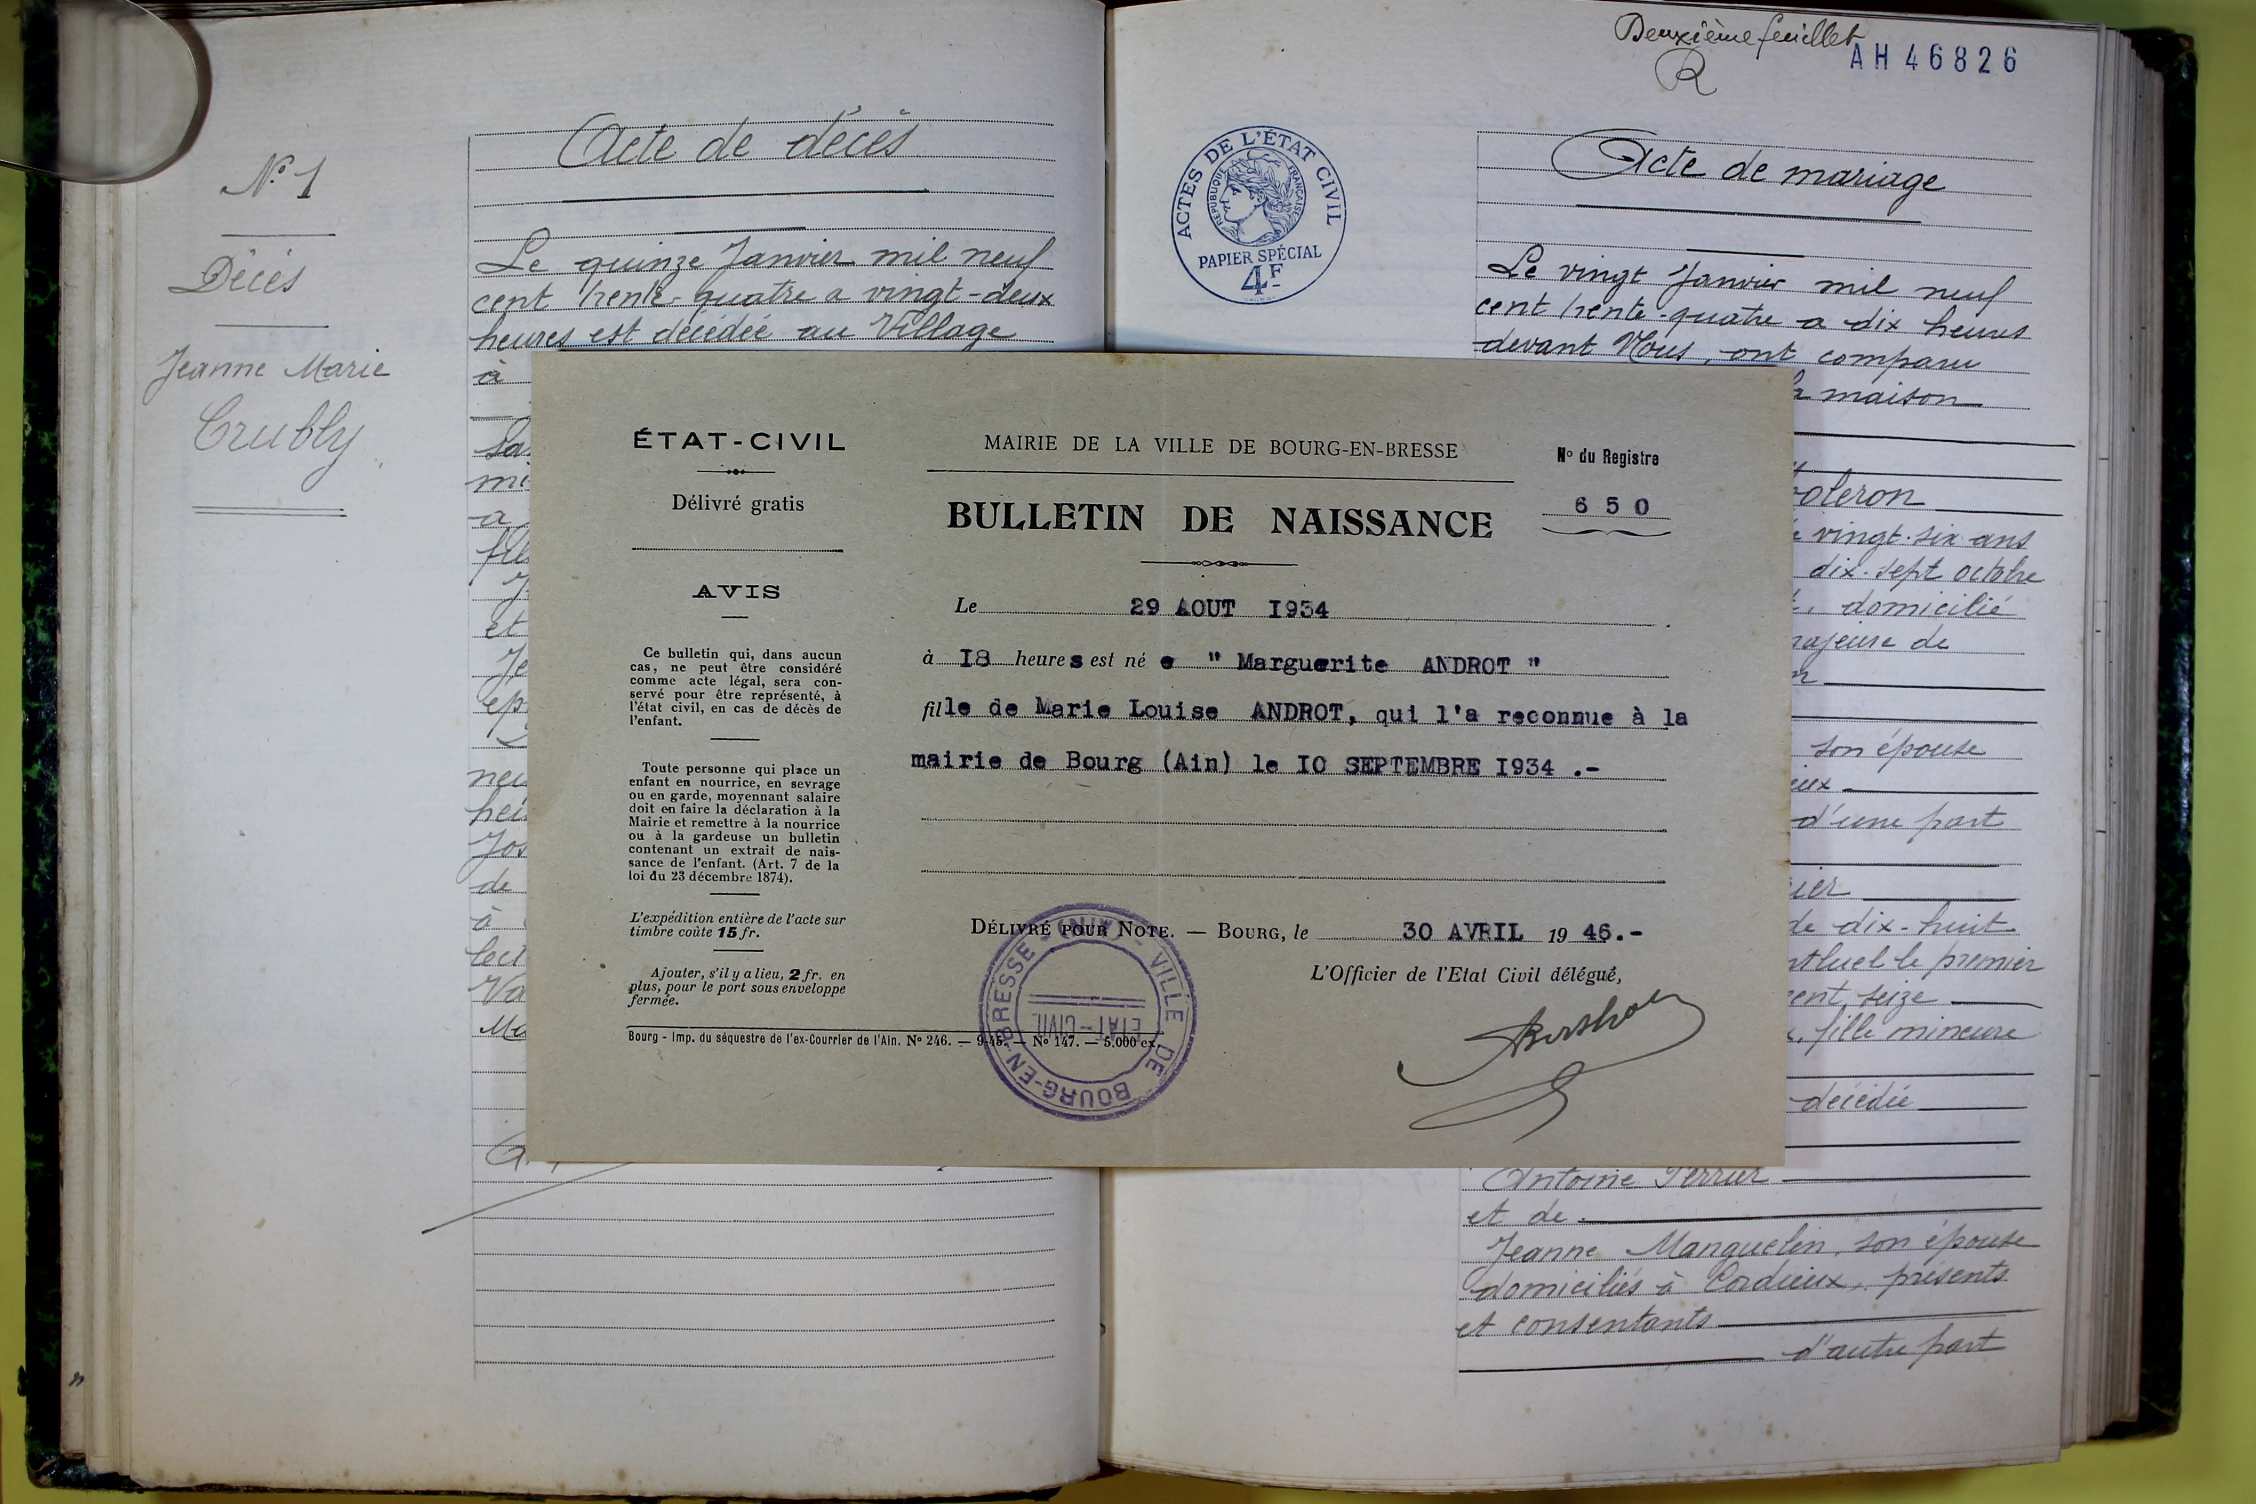 Nº 1
Décès
Jeanne Marie
Acte de décès
Le quinze Janvier mil neuf
cent trente-quatre a vingt-deux
heures est décédée au Village
à
mi
a
et
à
de
Deuxième feuillet
AH 46826
ACTES DE L'ÉTAT CIVIL
RÉPUBLIQUE FRANÇAISE
PAPIER SPÉCIAL
4F
Acte de mariage
Le vingt Janvier mil neuf
cent trente-quatre a dix heures
devant Nous, ont comparu
maison
vingt-six ans
dix-sept octobre
domicilié
majeure de
son épouse
d'une part
de dix-huit
le premier
cent seize
fille mineure
décédée
Antoine Perrier
et de
Jeanne Manguelin, son épouse
domiciliés à Cordieux, présents
et consentants
d'autre part
ÉTAT-CIVIL
Délivré gratis
AVIS
Ce bulletin qui, dans aucun
cas, ne peut être considéré
comme acte légal, sera con-
servé pour être représenté, à
l'état civil, en cas de décès de
l'enfant.
Toute personne qui place un
enfant en nourrice, en sevrage
ou en garde, moyennant salaire
doit en faire la déclaration à la
Mairie et remettre à la nourrice
ou à la gardeuse un bulletin
contenant un extrait de nais-
sance de l'enfant. (Art. 7 de la
loi du 23 décembre 1874).
L'expédition entière de l'acte sur
timbre coûte 15 fr.
Ajouter, s'il y a lieu, 2 fr. en
plus, pour le port sous enveloppe
fermée.
Bourg - Imp. du séquestre de l'ex-Courrier de l'Ain. Nº 246. — 9-45. — Nº 147. — 5.000 ex.
MAIRIE DE LA VILLE DE BOURG-EN-BRESSE
Nº du Registre
650
BULLETIN DE NAISSANCE
Le 29 AOUT I934
à I8 heures est né e " Marguerite ANDROT "
fille de Marie Louise ANDROT, qui l'a reconnue à la
mairie de Bourg (Ain) le IO SEPTEMBRE I934 .-
DÉLIVRÉ POUR NOTE. — BOURG, le 30 AVRIL 19 46.-
L'Officier de l'Etat Civil délégué,
VILLE DE BOURG-EN-BRESSE (AIN)
ETAT-CIVIL